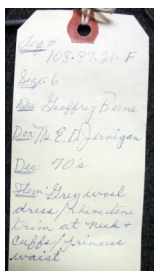 Seq#
108-87-21-F
Size: 6
Des: Geoffrey Beene
Don: Ms. E. D. Jernigan
Dec: 70's
Item: Grey wool
dress/rhinestone
trim at neck &
cuffs/princess
waist